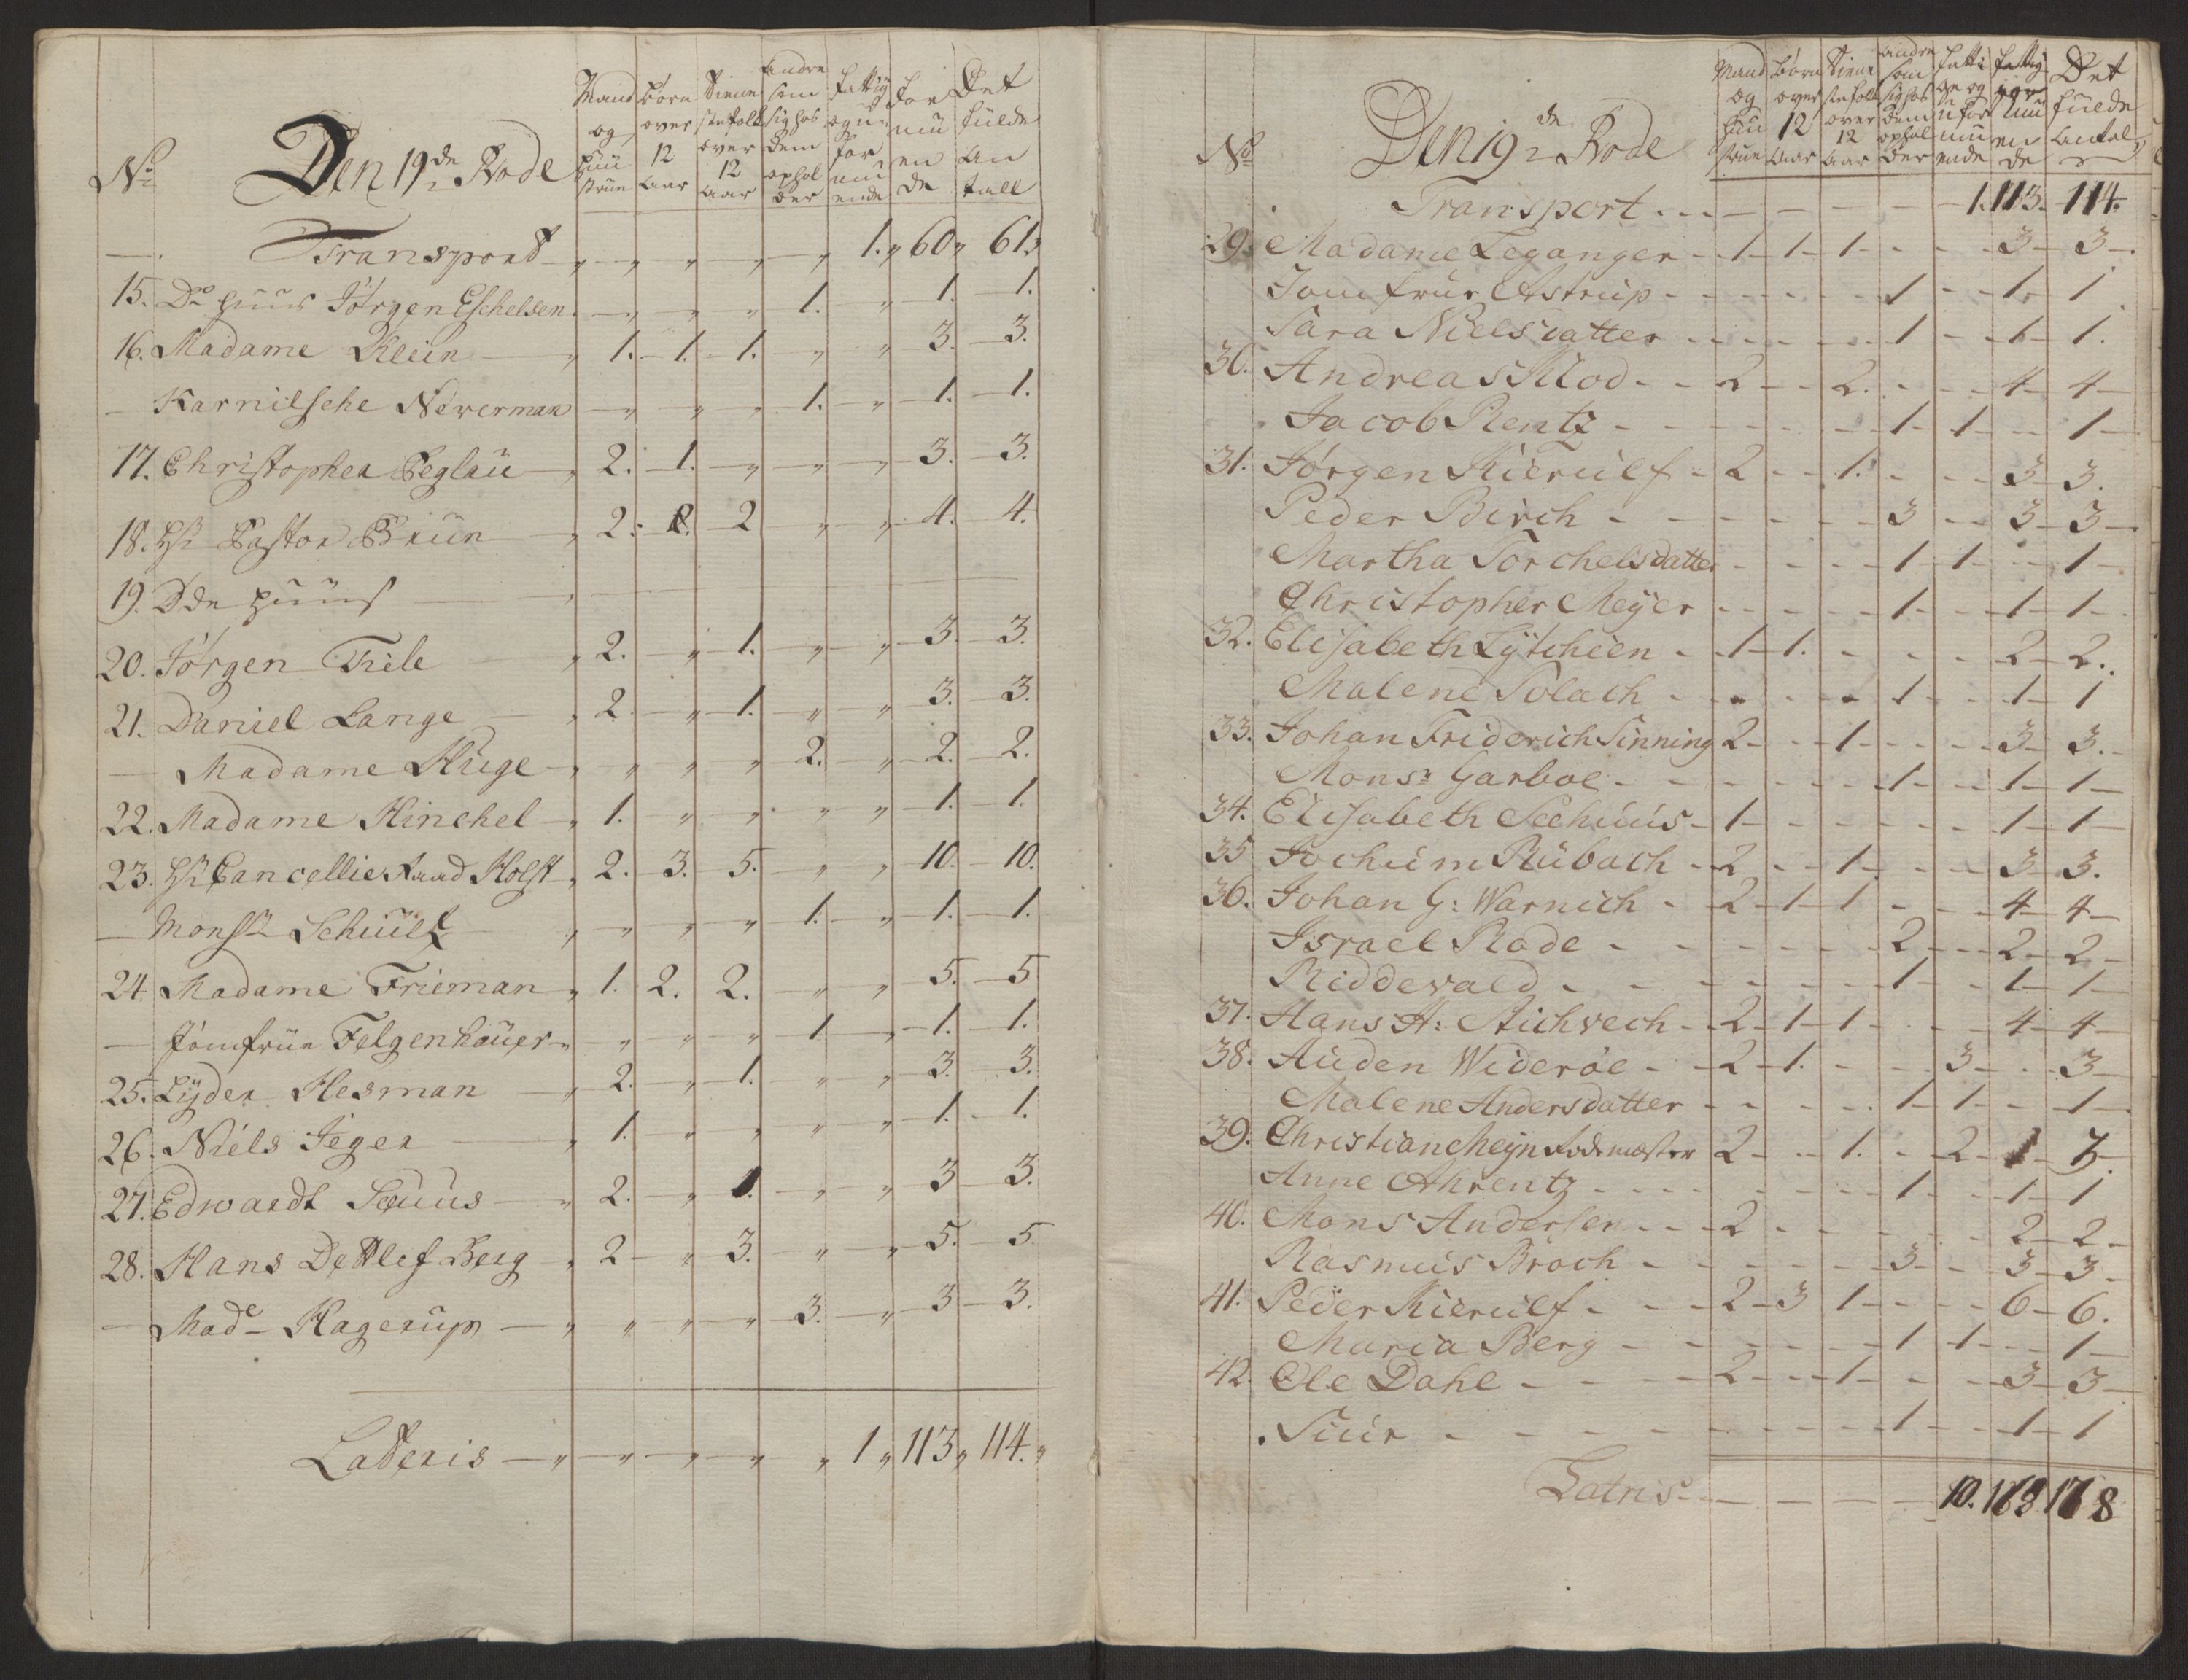 No Den 19de Rode Mand og Hüüstrüe Børn over 12 Aar Tienestefolk over 12 Aar Andre som sig hos dem ophol der fattig og uformuende Formüende Det fulde Antall
Transport „ „ „ „ „ 1. „ 60 „ 61 „
15. Do Huus Jørgen Eschelsen „ „ „ 1. „ 1. 1.
16. Madame Klein „ 1. 1. 1. „ „ 3. 3.
Karnilsche Neverman „ „ „ 1. „ 1. 1.
17. Christopher Beglau „ 2. 1. „ „ „ 3. 3.
18. Hr Pastor Brün „ 2. 2 „ „ 4. 4.
19. Dde Huus
20. Jørgen Tiele „ 2. „ 1. „ „ 3. 3.
21. Daniel Lange „ 2. „ 1. „ „ 3. 3.
Madame Küge „ „ „ „ 2. „ 2. 2.
22. Madame Hinchel „ 1. „ „ „ „ 1. 1.
23. Hr Cancellie Raad Holst „ 2. 3. 5. „ „ 10. 10.
Monsr Schult „ „ „ „ 1. „ 1. 1.
24. Madame Frieman „ 1. 2. 2. „ „ 5. 5
Jomfrue Felgenhauer „ „ „ „ 1 „ 1. 1.
25. Lyder Hesman „ 2. „ 1. „ „ 3. 3.
26. Niels Jeger „ 1. „ „ „ „ 1. 1.
27. Edwardt Seuus „ 2. „ 1. „ „ 3 3.
28. Hans Dettlef Berg „ 2 „ 3. „ „ 5. 5
Made Hagerup „ „ „ „ 3. „ 3 3.
Latteris „ „ „ „ „ 1 „ 113 „ 114 „
No Den 19de Rode Mand og Huustrue Børn over 12 Aar Tienestefolk over 12 Aar Andre som sig hos dem ophol der fattige og uformuende formuende Det fulde Antal
Transport 1. 113. 114.
29. Madame Leganger 1 1 1 3 3
Jomfrue Astrup 1 1 1
Sara Nielsdatter 1 1 1.
30. Andreas Klod 2 2. 4 4
Jacob Rentz 1 1 1
31. Jørgen Kierulf 2 1. 3 3.
Peder Birch 3 3 3
Martha Torchelsdatter 1 1 1
Christopher Meyer 1 1 1
32. Elisabeth Lytchien 1 1. 2 2.
Malene Solach 1 1 1
33. Johan Friderich Sinning 2 1 3 3.
Monsr Garboe 1 1 1
34. Elisabeth Seehuus 1 1 1
35 Jochum Rübach 2 1 3 3.
36. Johan G: Warnich 2 1 1 4 4
Israel Rode 2 2 2
Riddevald 1 1 1
37. Hans H: Stichvech 2 1 1 4 4
38. Auden Widerøe 2 1. 3 3
Malene Andersdatter 1 1 1
39. Christian Meyn Rodemæster 2 1. 2 1 3.
Anne Ahrentz 1 1 1
40. Mons Andersen 2 2 2
Rasmus Broch 3 3 3
41. Peder Kierulf 2 3 1 6 6.
Maria Berg 1 1 1
42. Ole Dahl 2 1 3 3
Suur 1 1 1
Latris 10. 168 178